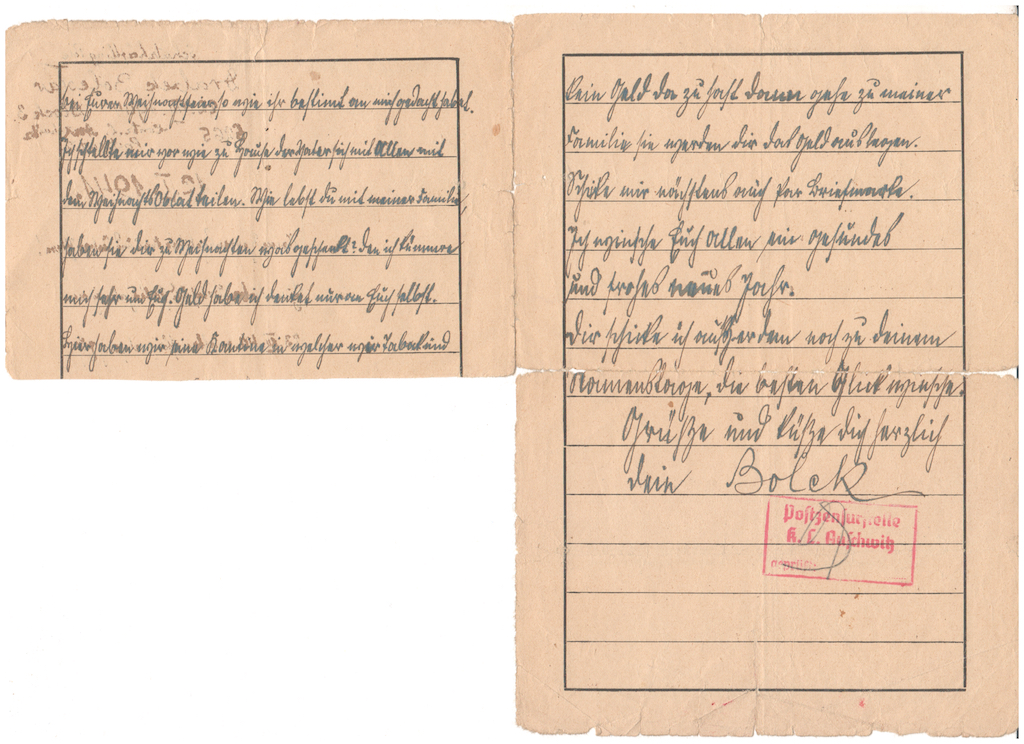 bei Eurer Weihnachtsfeier so wie ihr bestimt an mich gedacht habet.
Ich schtellte mir vor wie zu Hause der Vater sich mit Allen mit
dem Weihnachts Oblat teilen. Wie lebst du mit meiner Familie,
haben sie dir zu Weihnachten was geschenkt? den ich kümmere
mich sehr um Euch. Geld habe ich denket nur an Euch selbst.
hier haben wir eine Kantine in welcher wir Tabak und
kein Geld da zu hast dann gehe zu meiner
Familie sie werden dir das Geld auslegen.
Schike mir nächstens auch par Briefmarke.
Ich winsche Euch Allen ein gesundes
und frohes neues Jahr.
Dir schicke ich außerdem noch zu deinem
Namenstage, die besten Glückwinsche.
Grüsze und küsze dich herzlich
dein Bolek
Postzensurstelle
K. L. Auschwitz
geprüft: